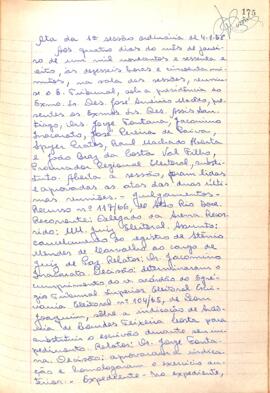 175
Ata da 1ª sessão ordinária de 4-1-68
Aos quatro dias do mês de janei-
ro de um mil novecentos e sessenta e
oito, às dezesseis horas e cinquenta mi-
nutos, na sala das sessões, reuniu-
se o E. Tribunal, sob a presidência do
Exmo. Sr. Des. José Américo Macêdo, pre-
sentes os Exmos. Srs. Des. José San-
tiago, Drs. Jorge Fontana, Jacomino
Inacarato, José Pereira de Paiva,
Cyper Pratas, Raul Machado Horta
e João Braz da Costa Val Filho,
Procurador Regional Eleitoral, subs-
tituto. Aberta a sessão, foram lidas
e aprovadas as atas das duas últi-
mas reuniões. – Julgamentos –
Recurso nº 117/66, de Alto Rio Doce.
Recorrente: Delegado da Arena. Recor-
rido: MM. Juiz Eleitoral. Assunto:
cancelamento do registro de Stênio
Mendes de Carvalho ao cargo de
Juiz de Paz. Relator: Dr. Jacomino
Inacarato. Decisão: determinaram o
cumprimento do v. acórdão do Egré-
gio Tribunal Superior Eleitoral.
vania Eleitoral nº 104/65, de Dom
Joaquim, sôbre a indicação de
de Lourdes Teixeira Costa para
substituir o escrivão durante seu im-
pedimento. Relator: Dr. Jorge Fonta-
na. Decisão: aprovaram a indica-
ção e homologaram o exercício an-
terior. – Expediente – No expediente,